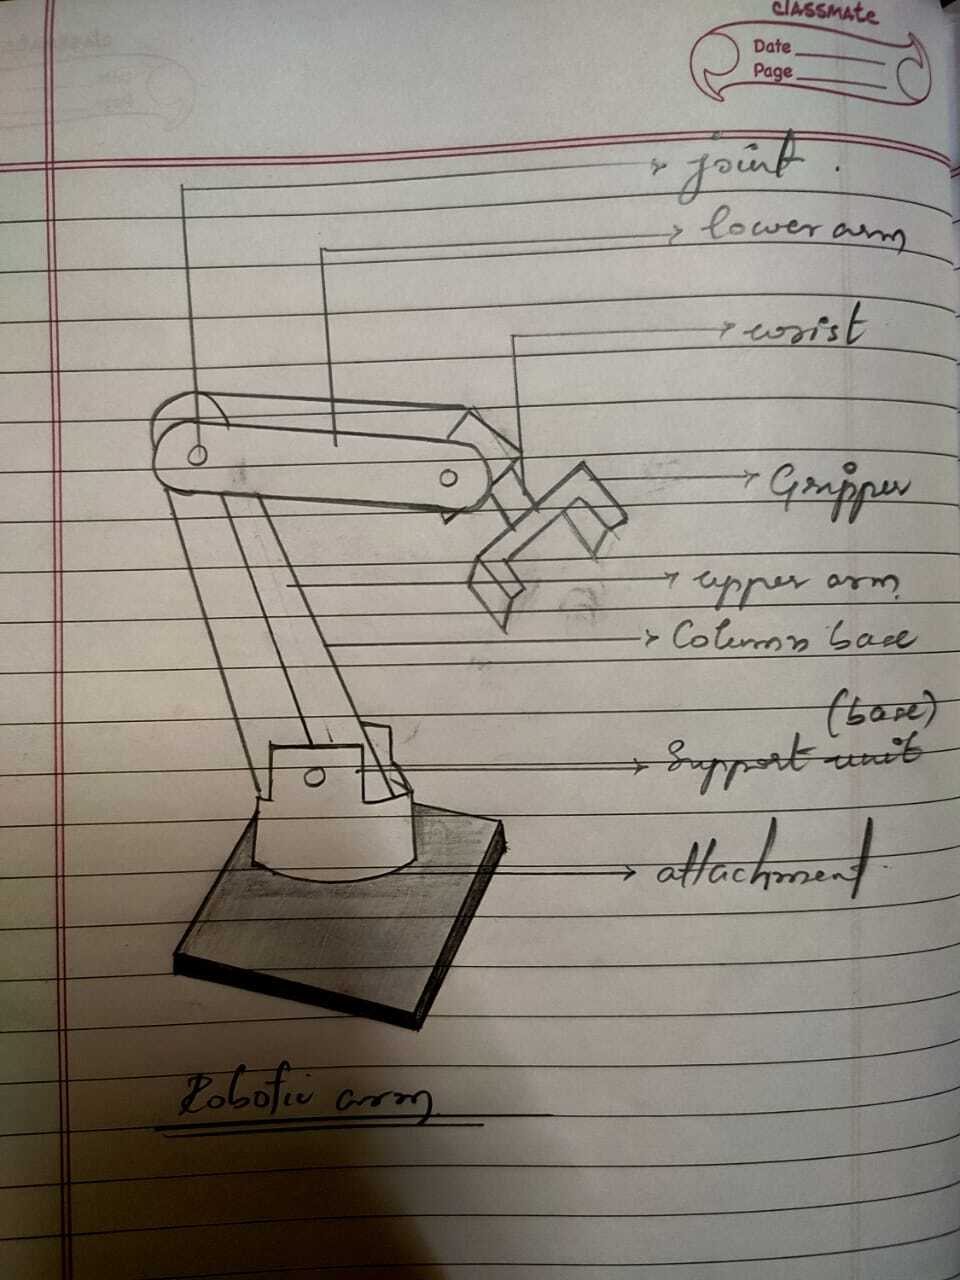 classmate
Date
Page
joint
lower arm
wrist
Gripper
upper arm
Column base
(base)
Support unit
attachment
Robotic arm